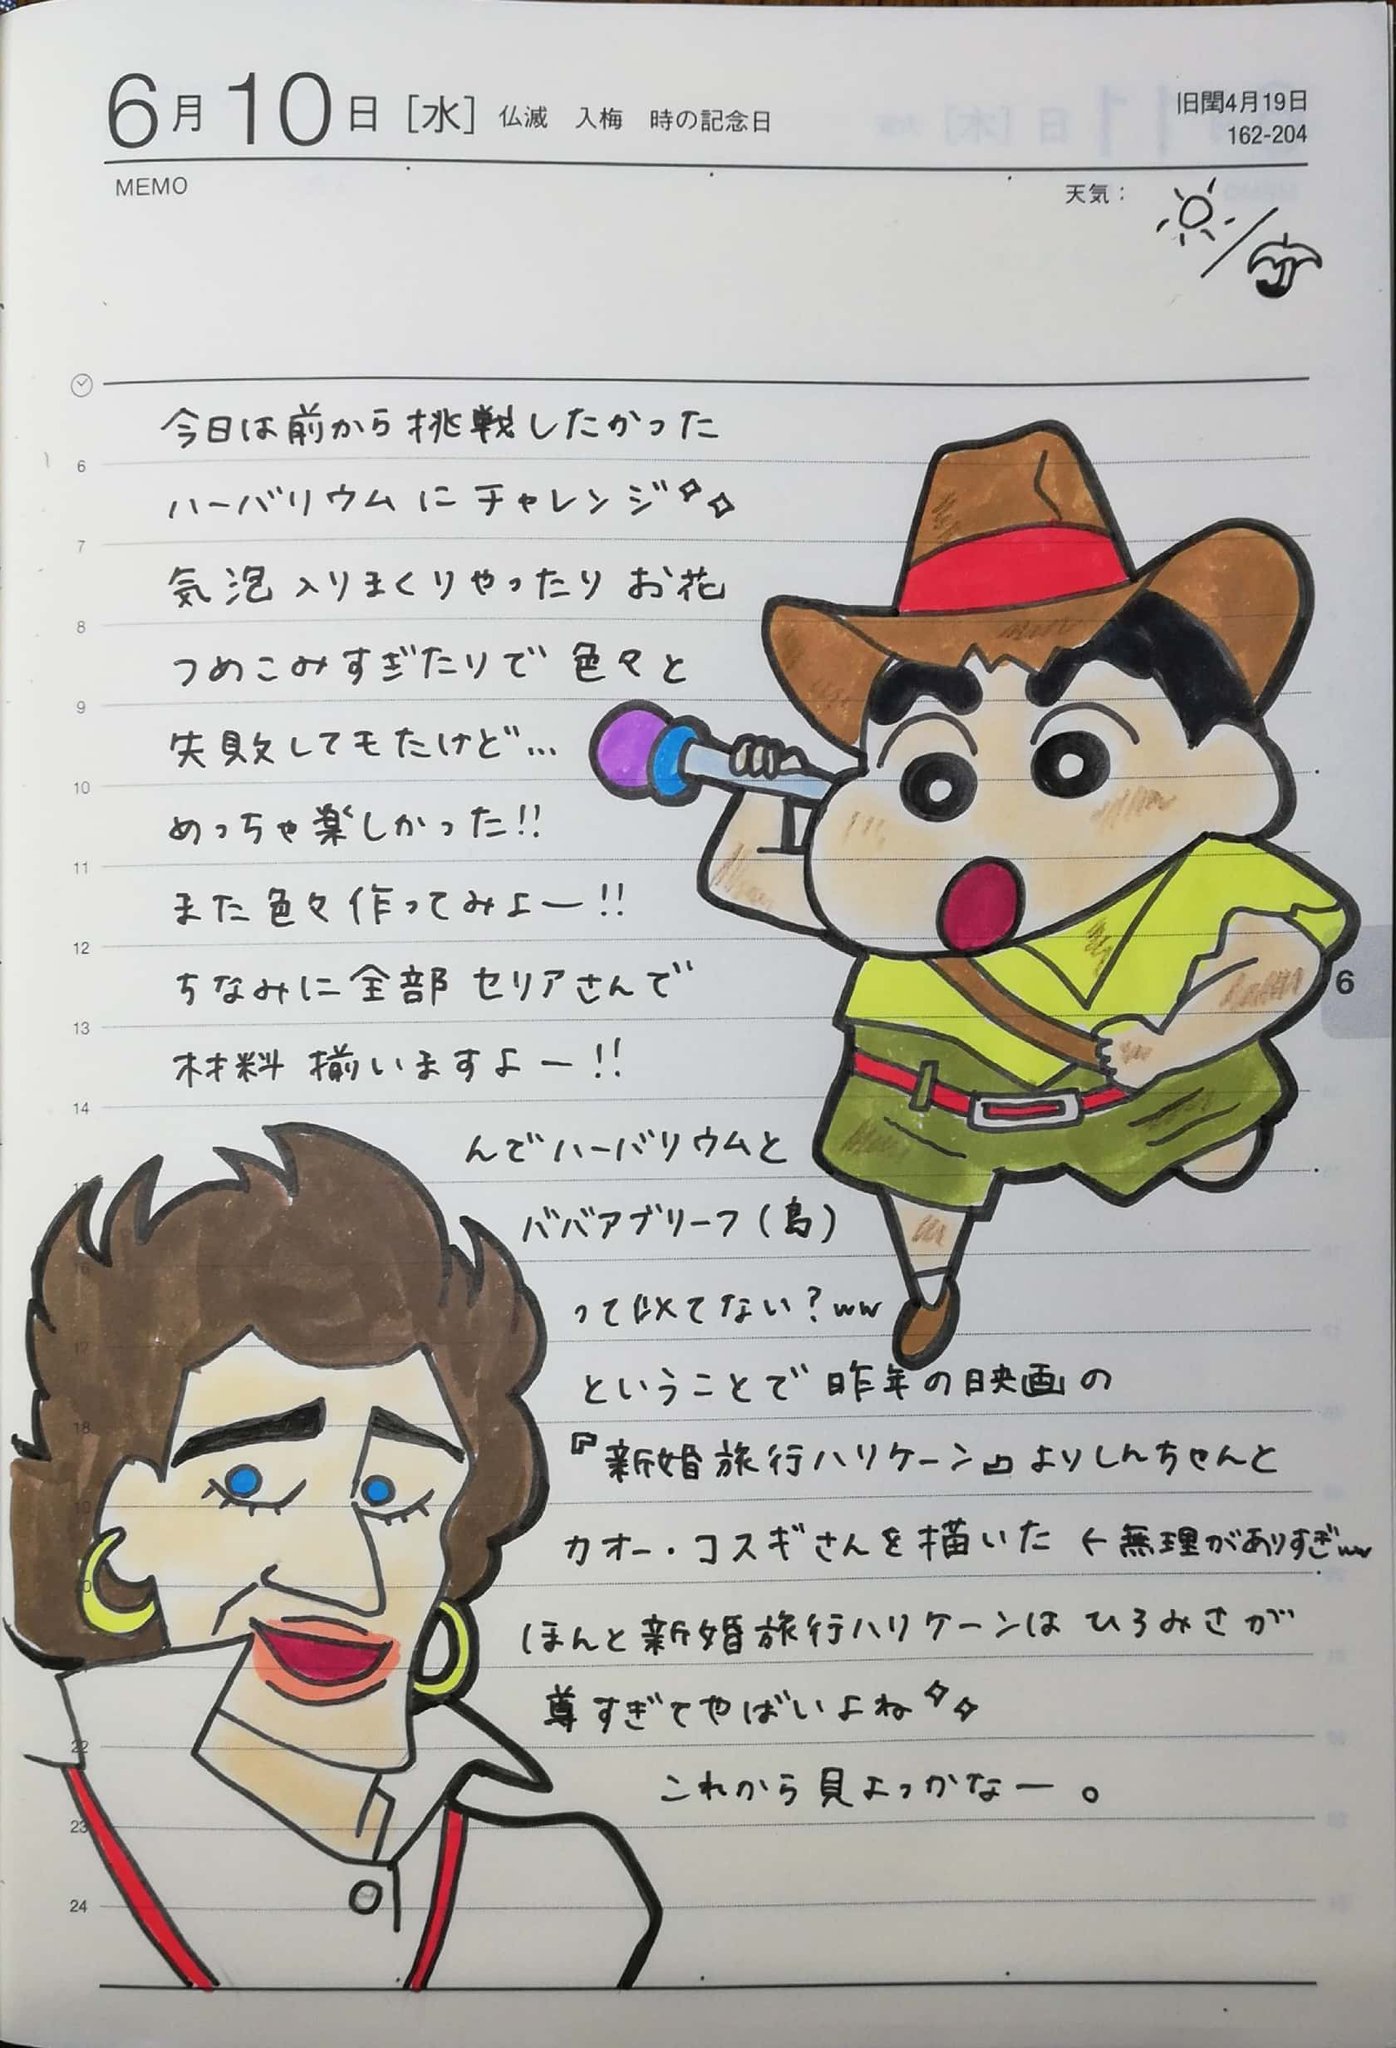 6月10日[水] 仏滅 入梅 時の記念日
旧閏4月19日
162-204
MEMO
天気：
今日は前から挑戦したかった
6
ハーバリウムにチャレンジ
7
気泡入りまくりやったりお花
8
つめこみすぎたりで色々と
9
失敗してもたけど…
10
めっちゃ楽しかった!!
11
また色々作ってみよー!!
12
ちなみに全部セリアさんで
6
13
材料揃いますよー!!
14
んでハーバリウムと
ババアブリーフ(島)
16
って似てない?ww
17
ということで昨年の映画の
18
『新婚旅行ハリケーン』よりしんちゃんと
19
カオー・コスギさんを描いた ←無理がありすぎww
20
ほんと新婚旅行ハリケーンはひろみさが
尊すぎてやばいよね
22
これから見よっかなー。
23
24